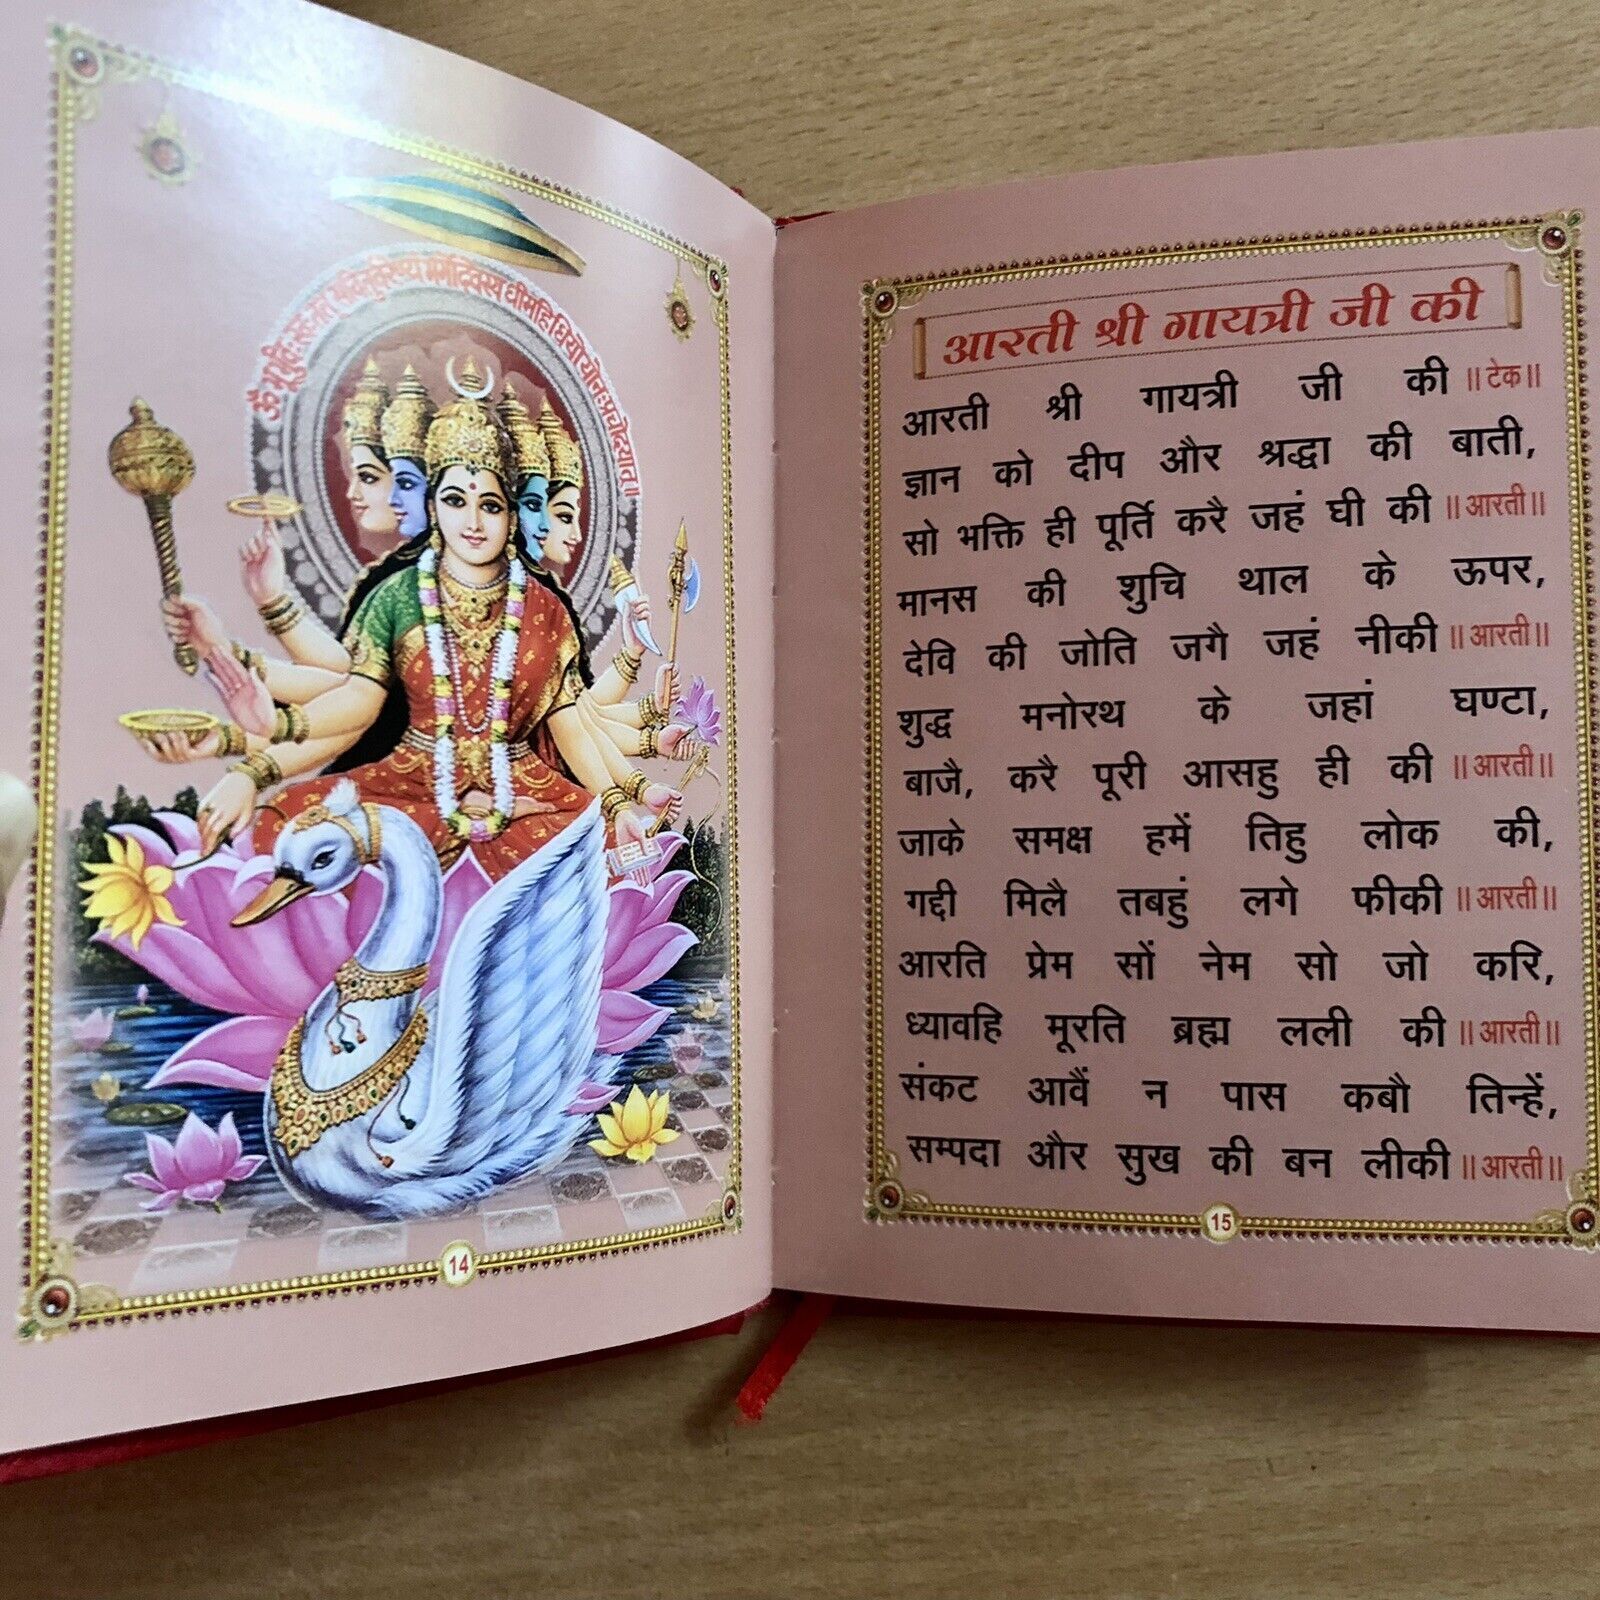 ॐ भूर्भुवः स्वः तत्
भर्गोदेवस्य धीमहि धियो योनः प्रचोदयात्॥
14
आरती श्री गायत्री जी की
आरती श्री गायत्री जी की ॥टेक॥
ज्ञान को दीप और श्रद्धा की बाती,
सो भक्ति ही पूर्ति करै जहं घी की ॥आरती॥
मानस की शुचि थाल के ऊपर,
देवि की जोति जगै जहं नीकी ॥आरती॥
शुद्ध मनोरथ के जहां घण्टा,
बाजै, करै पूरी आसहु ही की ॥आरती॥
जाके समक्ष हमें तिहु लोक की,
गद्दी मिलै तबहुं लगे फीकी ॥आरती॥
आरति प्रेम सों नेम सो जो करि,
ध्यावहि मूरति ब्रह्म लली की ॥आरती॥
संकट आवैं न पास कबौ तिन्हें,
सम्पदा और सुख की बन लीकी ॥आरती॥
15